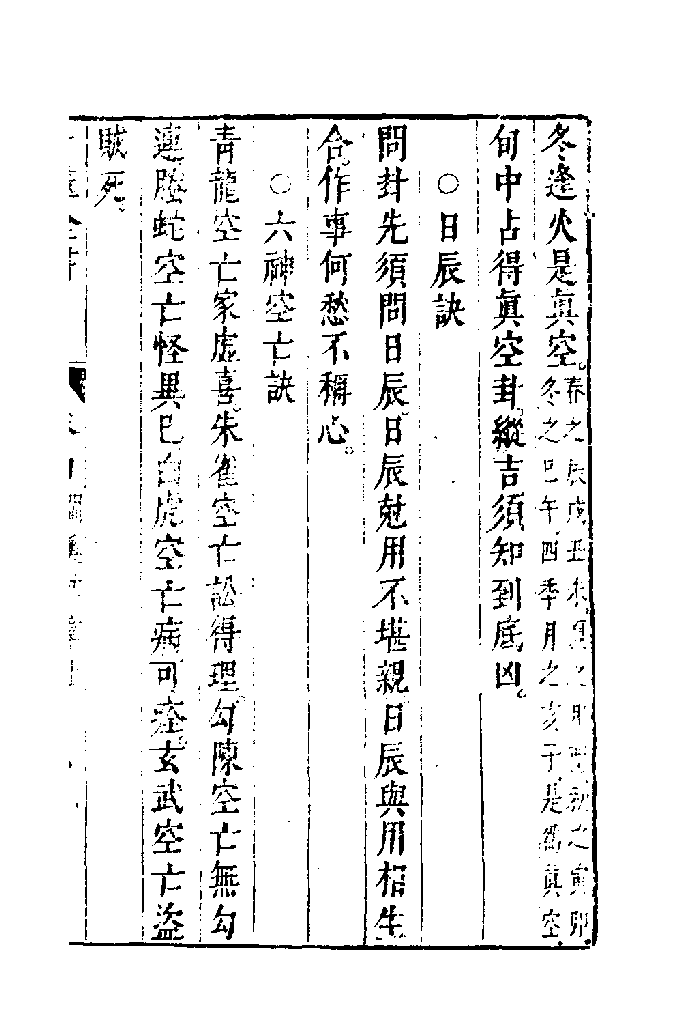 冬逢火是眞空。春之辰戌丑未夏之申酉秋之寅卯
冬之巳午四季月之亥子是爲眞空
旬中占得眞空卦。縱吉須知到底凶。
○日辰訣
問卦先須問日辰。日辰尅用不堪親。日辰與用相生
合。作事何愁不稱心。
○六神空亡訣
青龍空亡家虛喜。朱雀空亡訟得理。勾陳空亡無勾
連。螣蛇空亡怪異已。白虎空亡病可痊。玄武空亡盜
賊死。